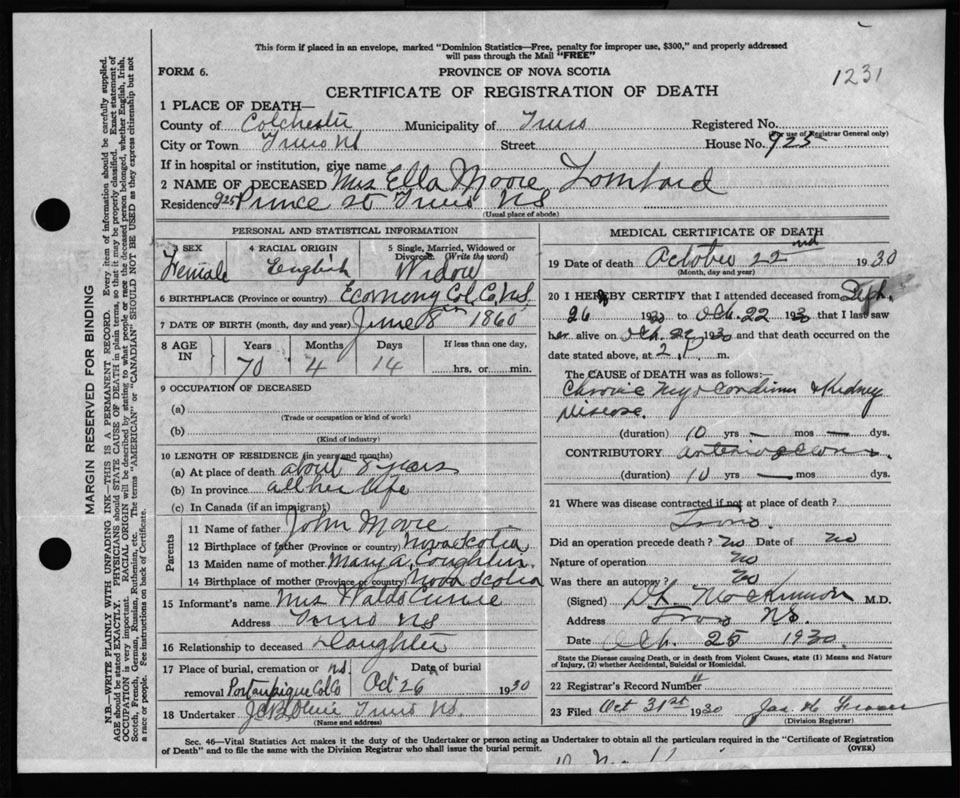 This form if placed in an envelope, marked "Dominion Statistics—Free, penalty for improper use, $300," and properly addressed
will pass through the Mail "FREE"
FORM 6.
PROVINCE OF NOVA SCOTIA
1231
CERTIFICATE OF REGISTRATION OF DEATH
1 PLACE OF DEATH—
County of Colchester Municipality of Truro Registered No.
(For use of Registrar General only)
City or Town Truro NS Street House No. 925
If in hospital or institution, give name
2 NAME OF DECEASED Mrs Ella Moore Lombard
Residence 925 Prince st Truro NS
(Usual place of abode)
PERSONAL AND STATISTICAL INFORMATION
3 SEX 4 RACIAL ORIGIN 5 Single, Married, Widowed or Divorced (Write the word)
Female English Widow
6 BIRTHPLACE (Province or country) Economy Col. Co. N.S.
7 DATE OF BIRTH (month, day and year) June 8th 1860
8 AGE IN Years Months Days If less than one day,
70 4 14 hrs. or min.
9 OCCUPATION OF DECEASED
(a)
(Trade or occupation or kind of work)
(b)
(Kind of industry)
10 LENGTH OF RESIDENCE (in years and months)
(a) At place of death about 8 years
(b) In province all her life
(c) In Canada (if an immigrant)
Parents
11 Name of father John Moore
12 Birthplace of father (Province or country) Nova Scotia
13 Maiden name of mother Mary A. Coughlin
14 Birthplace of mother (Province or country) Nova Scotia
15 Informant's name Mrs Waldo Currie
Address Truro NS
16 Relationship to deceased Daughter
17 Place of burial, cremation or removal Portaupique Col Co NS Date of burial Oct 26 1930
18 Undertaker Truro NS.
(Name and address)
MEDICAL CERTIFICATE OF DEATH
19 Date of death October 22nd 1930
(Month, day and year)
20 I HEREBY CERTIFY that I attended deceased from Sept.
26 1930 to Oct. 22 1930 that I last saw
her alive on Oct. 22 1930 and that death occurred on the
date stated above, at 2 P. m.
The CAUSE of DEATH was as follows:—
Chronic Myocardium & Kidney
Disease.
(duration) 10 yrs — mos — dys.
CONTRIBUTORY
(duration) 10 yrs — mos dys.
21 Where was disease contracted if not at place of death?
Truro.
Did an operation precede death? No Date of No
Nature of operation No
Was there an autopsy? No
(Signed) McKinnon M.D.
Address Truro NS.
Date Oct. 25 1930
State the Disease causing Death, or in death from Violent Causes, state (1) Means and Nature
of Injury, (2) whether Accidental, Suicidal or Homicidal.
22 Registrar's Record Number
23 Filed Oct 31st 1930 Jas. H.
(Division Registrar)
Sec. 46—Vital Statistics Act makes it the duty of the Undertaker or person acting as Undertaker to obtain all the particulars required in the "Certificate of Registration
of Death" and to file the same with the Division Registrar who shall issue the burial permit.
(OVER)
MARGIN RESERVED FOR BINDING
N.B.—WRITE PLAINLY WITH UNFADING INK—THIS IS A PERMANENT RECORD. Every item of information should be carefully supplied.
AGE should be stated EXACTLY. PHYSICIANS should STATE CAUSE OF DEATH in plain terms, so that it may be properly classified. Exact statement of
OCCUPATION is very important. RACIAL ORIGIN will be described by stating to what people or race the deceased person belonged, whether English, Irish,
Scotch, French, German, Russian, Ruthenian, etc. The terms "AMERICAN" or "CANADIAN" SHOULD NOT BE USED as they express citizenship but not
a race or people. See instructions on back of Certificate.